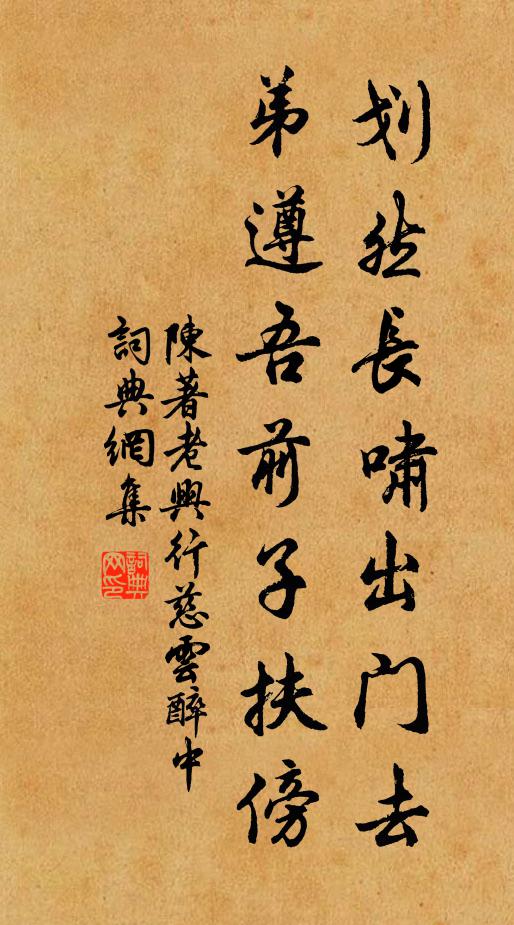 划然長嘯出门去
弟遵吾前子扶傍
陳著老興行慈雲醉中
詞典網集
詞典网印